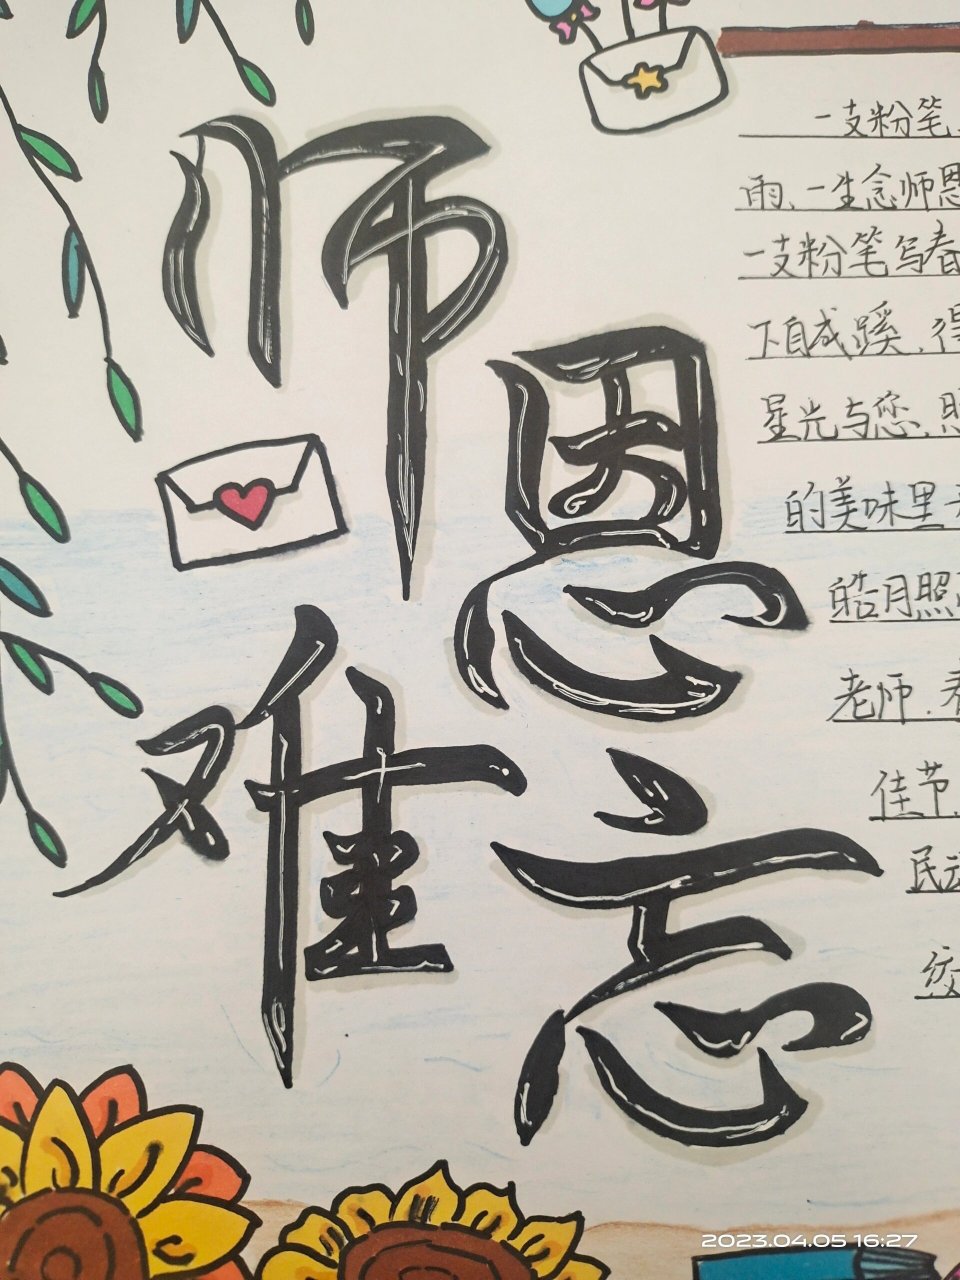 师恩
难忘
一支粉笔
雨、一生念师恩
一支粉笔写春
下自成蹊.得
星光与您.照
的美味里
皓月照
老师.春
佳节.
民
2023.04.05 16:27